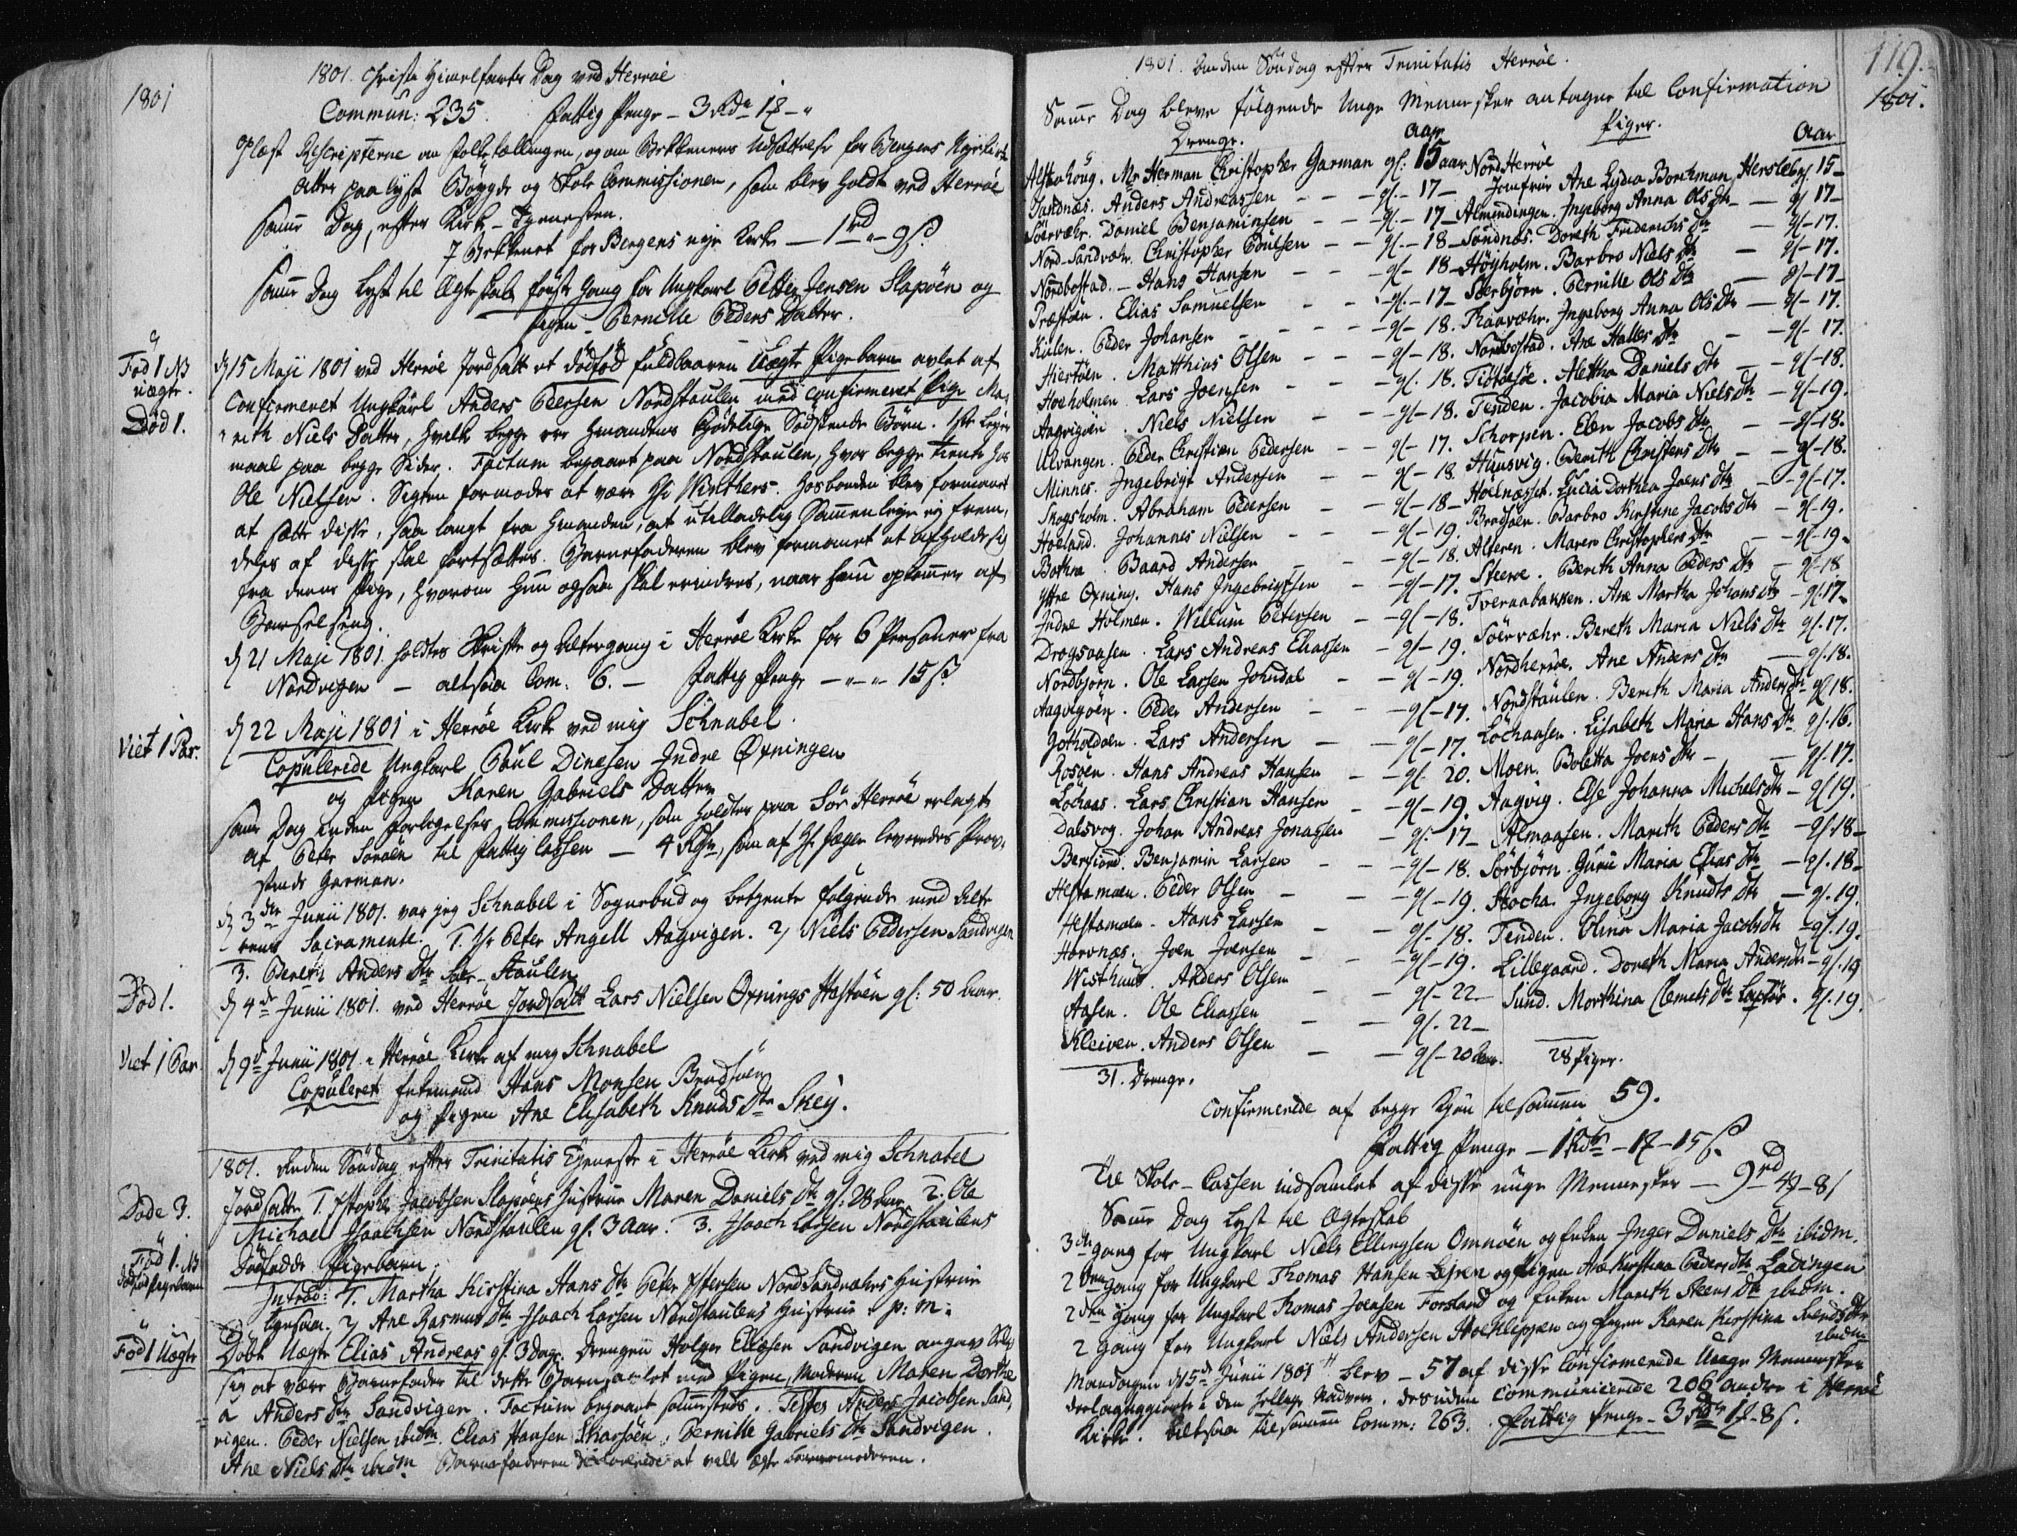 1801
1801. Christi Himelfarts Dag ved Herröe
Commun: 235. Fattig Penge - 3 Rdr 1 # - "
Oplæst Rescripterne om folketællingen, og om Bekkenernes Udsættelse for Bergens Nye Kirke
atter paalyst Böygde og Skole Commissionen, som blev holdt ved Herröe
samme Dag, efter Kirke-Tjenesten.
I Bekkenet for Bergens nye Kirke - 1 rd " - 9 s.
Samme Dag lyst til Ægteskab første Gang for Ungkarl Petter Jensen Slapöen og
Pigen - Pernille Peders Datter.
Föd 1 NB
uægte.
Död 1.
d 15 Maji 1801 ved Herröe Jordsatt et dödföd fuldbaaren Uægte Pigebarn avlet af
Confirmeret Ungkarl Anders Pedersen Nordstaulen med confirmeret Pige Ma-
rith Niels Datter, hvilke begge ere Hinandens Kjödelige Södskende Börn. 1ste Leyer-
maal paa begge Sider. Factum begaaet paa Nordstaulen, hvor begge tiente hos
Ole Nielsen. Sigten formodes at være Hr Winthers. Hosbonden blev formanet
at sætte disse, saa langt fra hinanden, at utilladelig Sammenleye ey frem-
deles af disse skal fortsættes. Barnefaderen blev formanet at afholde sig
fra denne Pige, hvorom Hun ogsaa skal erindres, naar hun opkommer af
Barselseng.
d 21 Maji 1801 holdtes Skrifte og Altergang i Herröe Kirke for 6 Personer fra
Nordvigen - altsaa Com: 6. - Fattig Penge - " - " - 15 s.
Viet 1 Par.
d 22 Maji 1801 i Herröe Kirke ved mig Schnabel.
Copulerede Ungkarl Paul Dinesen Indre Öxningen
og Pigen Karen Gabriels Datter
samme Dag inden Forligelses Commissionen, som holdtes paa Sör Herröe erlagte
af Peter Soröen til Fattig Cassen - 4 Rdr, som af Hr Jæger leveredes Prov-
stinde Garman.
d 3die Junii 1801. var jeg Schnabel i Sognebud og betjente følgende med Alte-
rens Sacramente. 1. Hr Peter Angell Aagvigen. 2) Niels Pedersen Sandvigen
3. Bereth Anders Dtr Sör-Staulen
Död 1.
d 4de Junii 1801. ved Herröe Jordsatt Lars Nielsen Öxnings Hestöen gl: 50 Aar.
Viet 1 Par
d 9de Junii 1801 i Herröe Kirke af mig Schnabel
Copuleret Enkemand Hans Monsen Brasöen
og Pigen Ane Elisabeth Knuds Dtr Skey.
1801. Anden Söndag efter Trinitatis Tjeneste i Herröe Kirke ved mig Schnabel
Döde 3.
Jordsatte 1. Christopher Jacobsen Slapöens Hustrue Maren Daniels Dtr gl. 28 Aar. 2. Ole
Michael Isaachsen Nordstaulen gl. 3 Aar. 3. Isaach Larsen Nordstaulens
Föd 1. NB
dödföd Pigebarn
Dödfödde Pigebarn.
Introd: 1. Martha Kirstina Hans Dtr Peter Iffersen Nord Sandvahrs Hustrue
2) Ane Rasmus Dtr Isaach Larsen Nordstaulens Hustrue p: m:
Föd 1 Uægte
Döbt Uægte Elias Andreas gl. 3 Dage. Drengen Holger Elliasen Sandvigen angav Selv
sig at være Barnefader til dette Barn avlet med Pigen, Moderen Maren Dorthe
a Anders Dtr Sandvigen. Factum begaaet sammesteds. Testes Anders Jacobsen Sand-
vigen. Peder Nielsen ibidm. Elias Hansen Skarsöen, Pernille Gabriels Dtr Sandvigen.
Ane Niels Dtr ibidm Barnefaderen declarerede at ville ægte Barnemoderen.
119.
1801.
1801. Anden Söndag efter Trinitatis Herröe.
Samme Dag bleve følgende Unge Mennesker antagne til Confirmation
Drenge. Aar Piger. Aar
Alstahoug. Mr Herman Christopher Garman gl: 15 aar Nord Herröe
Jomfrue Ane Lydia Borchman Hersleb gl 15 -
Sandnæs. Anders Andreassen - gl. - 17 - Almindingen. Ingeborg Anna Ols Dtr - gl 17 -
Söervæhr. Daniel Benjaminsen - gl. - 17 - Sandnæs. Doreth Friderichs Dtr - gl - 17.
Nord Sandvæhr. Christopher Poulsen - gl. - 18 - Höyholm. Barbro Niels Dtr - gl - 17.
Nordbostad. - Hans Hansen - gl - 18 - Söerbjörn. Pernille Ols Dtr - gl - 17 -
Præstöen. Elias Samuelsen - gl. - 17 - Traavæhr. Ingeborg Anna Ols Dtr - gl - 17.
Kulen. Peder Johansen - gl - 18. Nordbostad. Ane Halles Dtr - gl - 17.
Hiertöen. Matthias Olsen - gl - 18. Tiötöesöe. Alettha Daniels Dtr - gl - 18.
Hoeholmen. Lars Joensen - gl. 18. Tenden. Jacobia Maria Niels Dtr - gl - 19.
Aagvigöen. Niels Nielsen - gl - 18. Schorpen. Elen Jacobs Dtr - gl - 18.
Ulvangen. Peder Christian Pedersen - gl - 17. Hunsvig. Berith Christens Dtr - gl - 18.
Minnes. Ingebrigt Andersen - gl - 18. Höilnæsset. Lucia Dorthea Joens Dtr - gl - 17.
Skogsholm. Abraham Pedersen - gl - 18 - Brasöen. Barbro Kirstine Jacobs Dtr - gl - 19.
Hoeland. Johannes Nielsen - gl - 19. Alteren. Maren Christophers Dtr - gl - 19 -
Bothn. Baard Andersen - gl - 18. Steeroe. Berith Anna Peders Dtr - gl - 18
Yttre Öxning. Hans Ingebrigtsen - gl - 17. Tveraabakken. Ane Martha Johans Dtr - gl 17 -
Indre Holmen. Willum Petersen - gl - 18. Söervæhr. Bereth Maria Niels Dtr gl. 17.
Drogsaasen. Lars Andreas Eliassen - gl - 19. Nordherröe. Ane Anders Dtr - gl. 18.
Nordbjorn. Ole Larsen Johndal - gl - 19. Nordstaulen. Bereth Maria Anders Dtr gl 18.
Aagvigöen. Peder Andersen - gl - 17. Löchaasen. Lisabeth Maria Hans Dtr gl. 16.
Lars Andersen - gl - 17. Moen. Boletta Joens Dtr - gl. 17.
Rosöen. Hans Andreas Hansen - gl. 20. Aagvig. Else Johanna Michels Dtr - gl 19.
Löchaas. Lars Christian Hansen - gl - 19. Almaasen. Marith Peders Dtr - gl 18 -
Dalsvog. Johan Andreas Jonassen - gl. 17 - Sörbjörn. Guru Maria Elias Dtr - gl. 18 -
Berfiord. Benjamin Larsen - gl - 18. Stocha. Ingeborg Knudts Dtr - gl. 19.
Hestamoen. Peder Olsen - gl - 19. Tenden. Olina Maria Jacobs Dtr - gl. 19.
Hestamoen. Hans Larsen - gl - 18. Lillegaard. Doreth Maria Anders Dtr - gl. 19
Horvnæs. Joen Joensen - gl - 19. Sund. Morthina Clemets Dtr Laptör. gl. 19.
Wisthuus. Anders Olsen - gl - 22 -
Aasen. Ole Eliassen - gl. 22 -
Kleiven. Anders Olsen - gl - 20 Aar. 28 Piger.
31. Drenge.
Confirmerede af begge Kjön tilsammen 59.
Fattig Penge - 1 Rdr - 1 # - 15 s.
Til Skole-Cassen indsamlet af disse unge Mennesker - 9 rd - 4 # - 8 s
Samme Dag lyst til Ægteskab
3die gang for Ungkarl Niels Ellingsen Omnöen og Enken Inger Daniels Dtr ibidm.
2den Gang for Ungkarl Thomas Hansen Lejren og Pigen Ane Kirstina Peders Dtr Ladingen
2den gang for Ungkarl Thomas Joensen Forsland og Enken Marith Steens Dtr ibidm.
2 Gang for Ungkarl Niels Andersen Hoekleppen og Pigen Karen Kirstina Svends Dtr
ibidm
Mandagen d 15de Junii 1801 blev - 57 af disse Confirmerede Unge Mennesker
deelagtiggiorte i den hellige Nadvere. Desuden communicerede 206 andre i Herröe
Kirke. Altsaa tilsammen Comm: 263. Fattig Penge - 3 Rdr 1 # - 8 s.